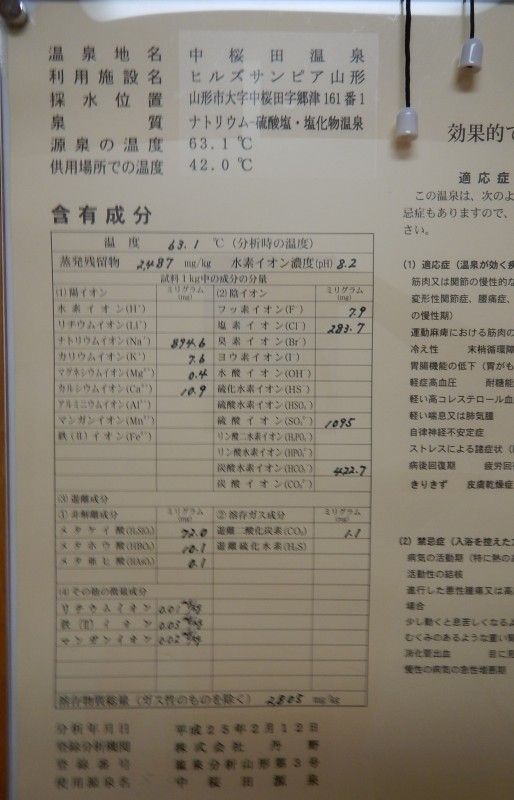 温泉地名 中桜田温泉
利用施設名 ヒルズサンピア山形
採水位置 山形市大字中桜田字郷津161番1
泉質 ナトリウム-硫酸塩・塩化物温泉
源泉の温度 63.1℃
供用場所での温度 42.0℃
含有成分
温度 63.1 ℃(分析時の温度)
蒸発残留物 2,487 mg/kg 水素イオン濃度(pH) 8.2
試料1kg中の成分の分量
(1)陽イオン ミリグラム(mg) (2)陰イオン ミリグラム(mg)
水素イオン(H⁺) フッ素イオン(F⁻) 7.9
リチウムイオン(Li⁺) 塩素イオン(Cl⁻) 283.7
ナトリウムイオン(Na⁺) 894.6 臭素イオン(Br⁻)
カリウムイオン(K⁺) 7.6 ヨウ素イオン(I⁻)
マグネシウムイオン(Mg²⁺) 0.4 水酸イオン(OH⁻)
カルシウムイオン(Ca²⁺) 10.9 硫化水素イオン(HS⁻)
アルミニウムイオン(Al³⁺) 硫酸水素イオン(HSO₄⁻)
マンガンイオン(Mn²⁺) 硫酸イオン(SO₄²⁻) 1095
鉄(II)イオン(Fe²⁺) リン酸二水素イオン(H₂PO₄⁻)
リン酸水素イオン(HPO₄²⁻)
炭酸水素イオン(HCO₃⁻) 422.7
炭酸イオン(CO₃²⁻)
③遊離成分
①非解離成分 ミリグラム(mg) ②溶存ガス成分 ミリグラム(mg)
メタケイ酸(H₂SiO₃) 72.0 遊離二酸化炭素(CO₂) 1.1
メタホウ酸(HBO₂) 10.1 遊離硫化水素(H₂S)
メタ亜ヒ酸(HAsO₂) 0.1
(4)その他の微量成分
リチウムイオン 0.01 mg/kg
鉄(II)イオン 0.03 mg/kg
マンガンイオン 0.02 mg/kg
溶存物質総量(ガス性のものを除く) 2805 mg/kg
分析年月日 平成25年2月12日
登録分析機関 株式会社 丹野
登録番号 温泉分析山形第3号
使用源泉名 中桜田源泉
効果的で
適応症
この温泉は、次のよ
忌症もありますので、
さい。
(1) 適応症(温泉が効く病
筋肉又は関節の慢性的な
変形性関節症、腰痛症、
の慢性期)
運動麻痺における筋肉の
冷え性 末梢循環障
胃腸機能の低下(胃がも
軽症高血圧 耐糖能
軽い高コレステロール血
軽い喘息又は肺気腫
自律神経不安定症
ストレスによる諸症状(
病後回復期 疲労回
きりきず 皮膚乾燥症
(2) 禁忌症(入浴を控えた
病気の活動期(特に熱のあ
活動性の結核
進行した悪性腫瘍又は高
場合
少し動くと息苦しくなるよ
むくみのあるような重い腎
消化管出血 目に見
慢性の病気の急性増悪期